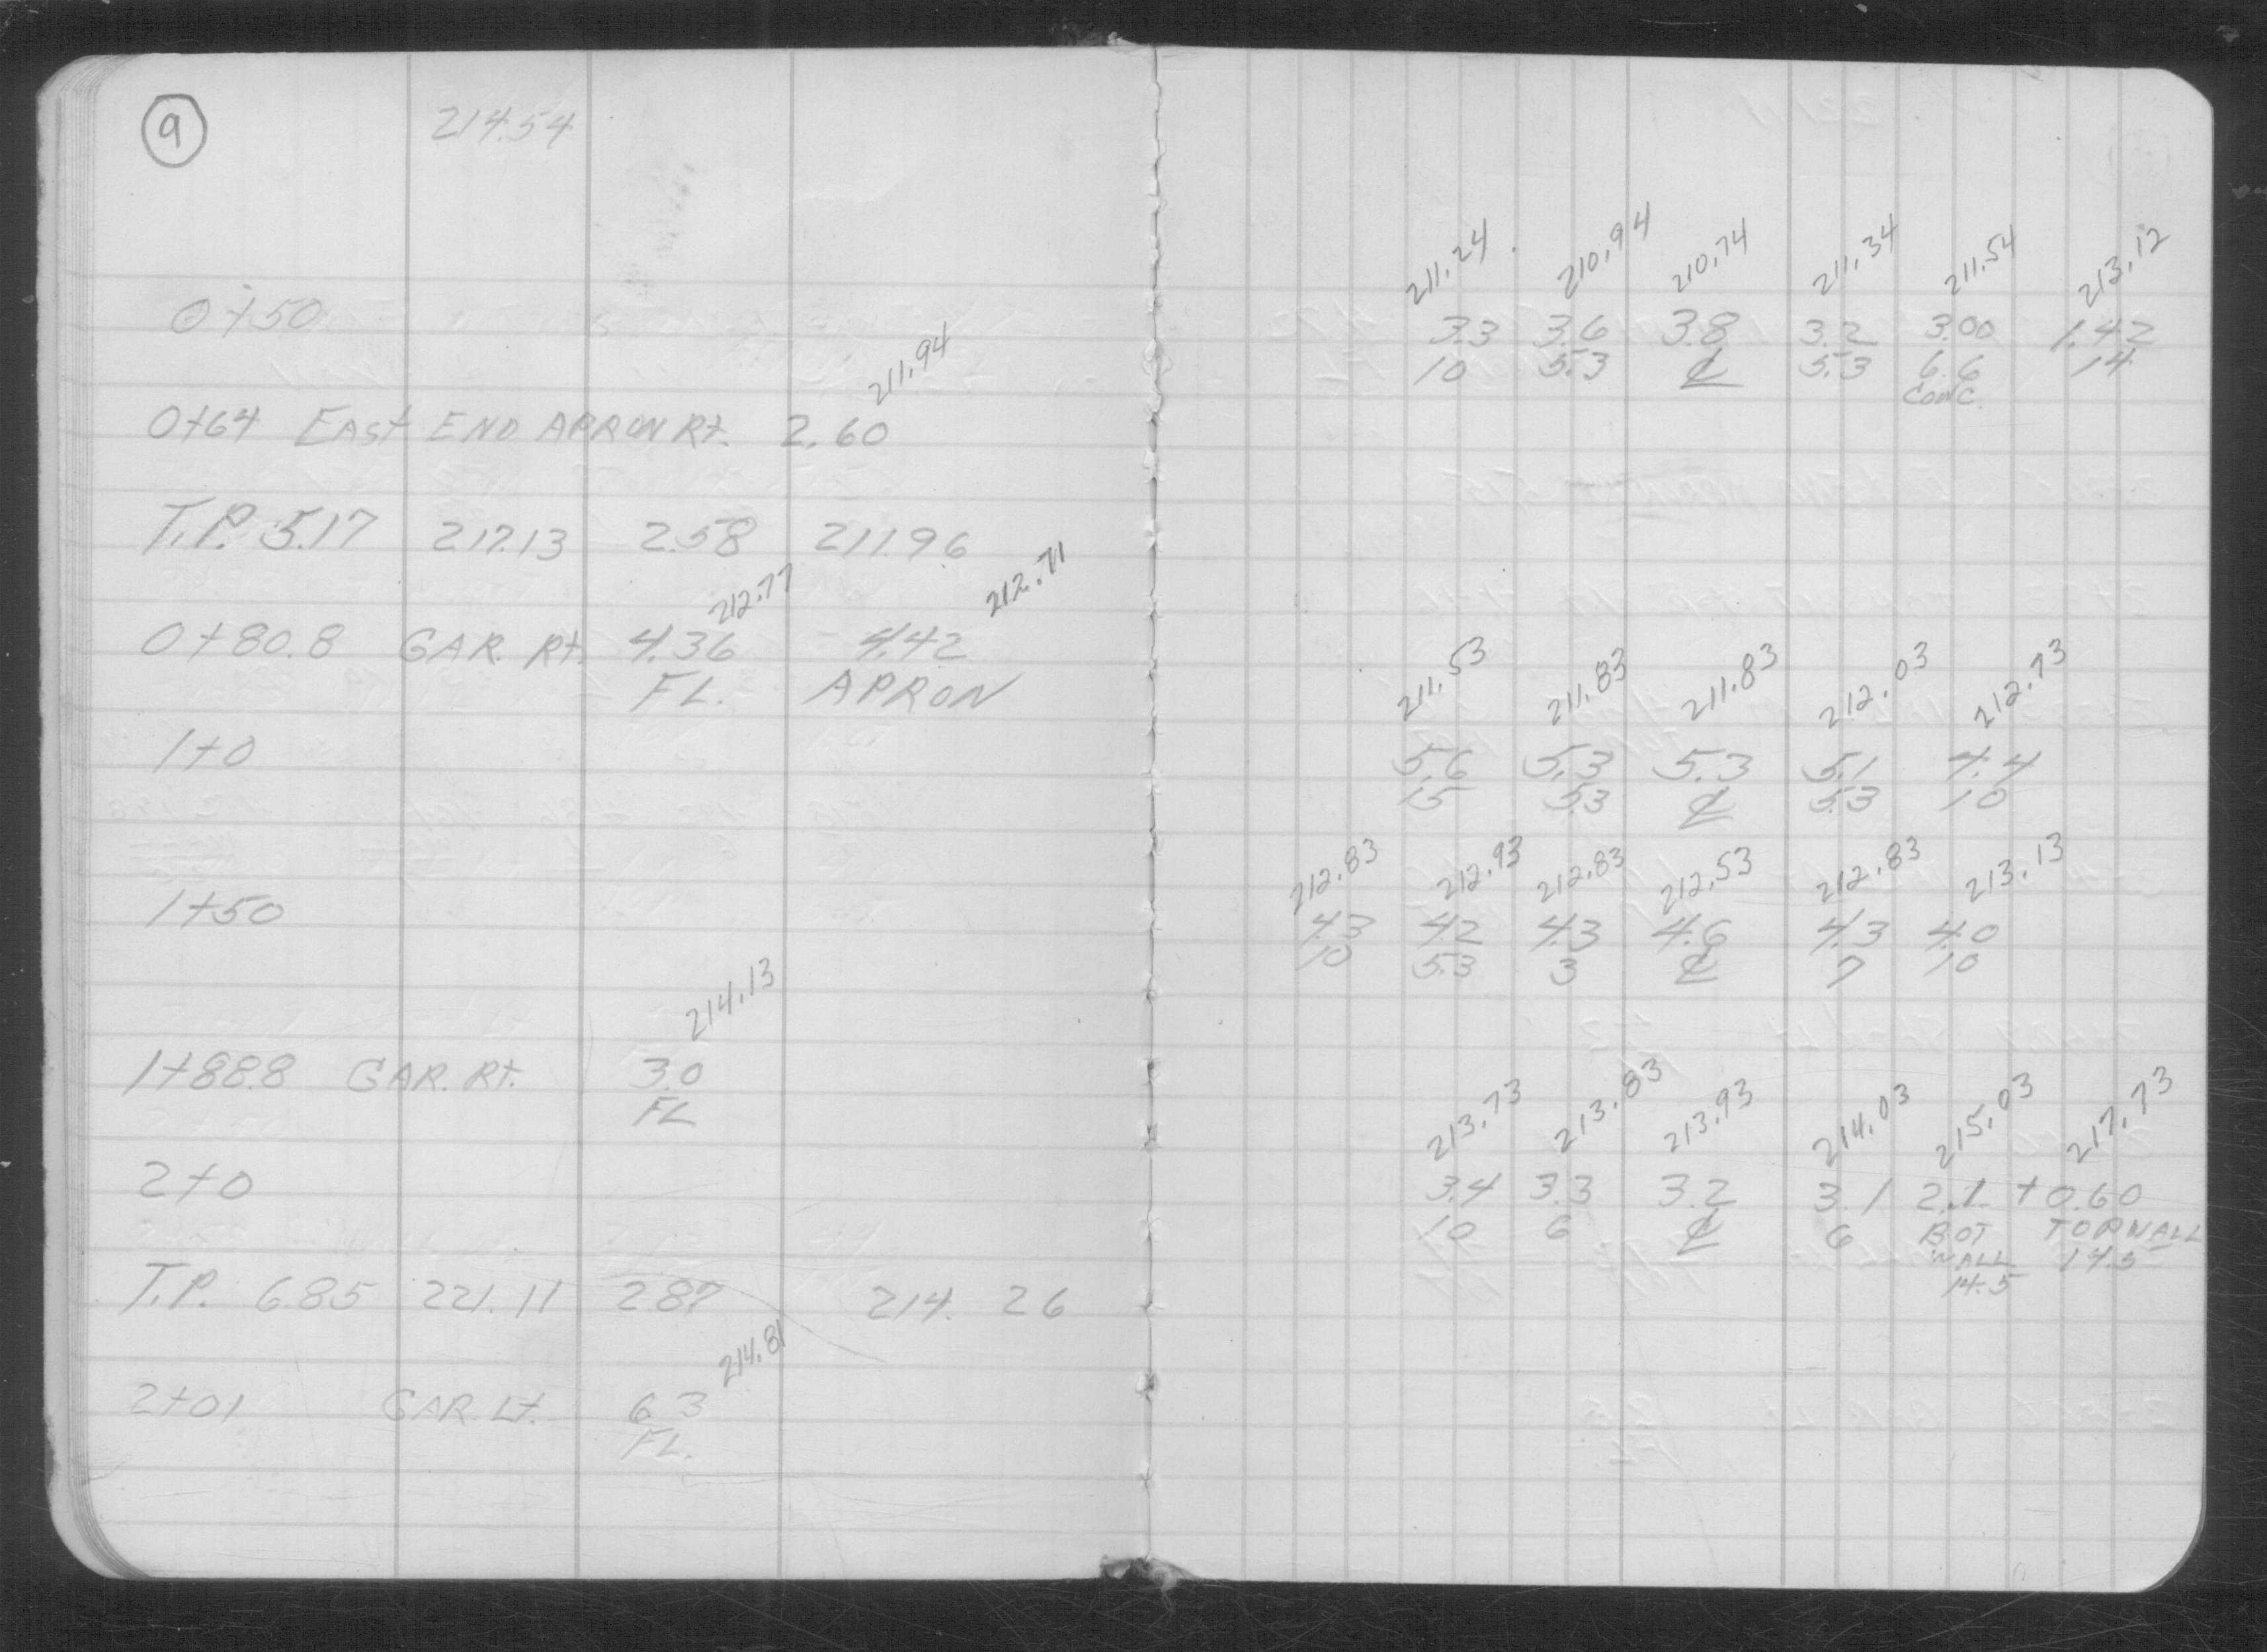 9
214.54
0+50
211.94
0+64 EAST END APRON Rt. 2.60
T.P. 5.17 217.13 2.58 211.96
212.77 212.71
0+80.8 GAR. Rt. 4.36 4.42
FL. APRON
1+0
1+50
214.13
1+88.8 GAR. Rt. 3.0
FL
2+0
T.P. 6.85 221.11 2.87 214.26
214.81
2+01 GAR. Lt. 6.3
FL.
211.24 210.94 210.74 211.34 211.54 213.12
3.3 3.6 3.8 3.2 3.00 1.42
10 5.3 ℄ 5.3 6.6 14
CONC.
211.53 211.83 211.83 212.03 212.73
5.6 5.3 5.3 5.1 4.4
15 5.3 ℄ 5.3 10
212.83 212.93 212.83 212.53 212.83 213.13
4.3 4.2 4.3 4.6 4.3 4.0
10 5.3 3 ℄ 7 10
213.73 213.83 213.93 214.03 215.03 217.73
3.4 3.3 3.2 3.1 2.1 +0.60
10 6 ℄ 6 BOT TOP WALL
WALL 14.5
14.5